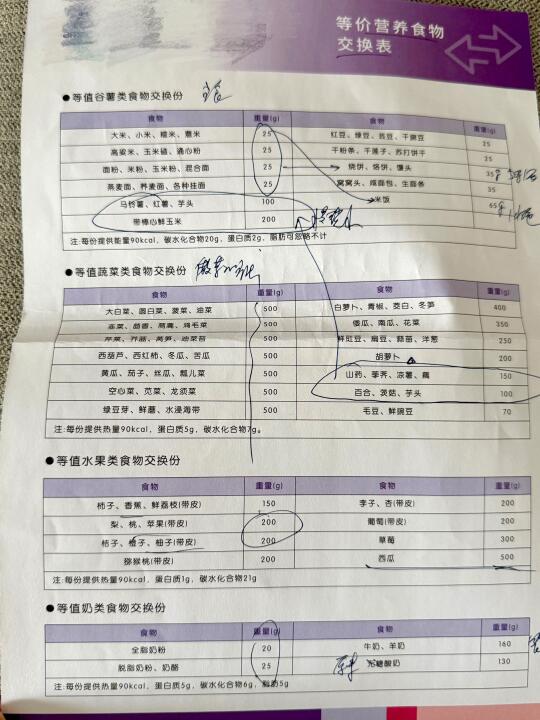 等价营养食物
交换表
●等值谷薯类食物交换份
食物 重量(g) 食物 重量(g)
大米、小米、糯米、薏米 25 红豆、绿豆、芸豆、干豌豆 25
高粱米、玉米碴、通心粉 25 干粉条、干莲子、苏打饼干 25
面粉、米粉、玉米粉、混合面 25 烧饼、烙饼、馒头 35
燕麦面、荞麦面、各种挂面 25 窝窝头、咸面包、生面条 35
马铃薯、红薯、芋头 100 米饭 65
带棒心鲜玉米 200
注:每份提供能量90kcal，碳水化合物20g，蛋白质2g，脂肪可忽略不计
●等值蔬菜类食物交换份
食物 重量(g) 食物 重量(g)
大白菜、圆白菜、菠菜、油菜 500 白萝卜、青椒、茭白、冬笋 400
韭菜、茴香、茼蒿、鸡毛菜 500 倭瓜、南瓜、花菜 350
芹菜、芥蓝、莴笋、油菜苔 500 鲜豇豆、扁豆、蒜苗、洋葱 250
西葫芦、西红柿、冬瓜、苦瓜 500 胡萝卜 200
黄瓜、茄子、丝瓜、瓢儿菜 500 山药、荸荠、凉薯、藕 150
空心菜、苋菜、龙须菜 500 百合、茨菇、芋头 100
绿豆芽、鲜蘑、水浸海带 500 毛豆、鲜豌豆 70
注:每份提供热量90kcal，蛋白质5g，碳水化合物7g。
●等值水果类食物交换份
食物 重量(g) 食物 重量(g)
柿子、香蕉、鲜荔枝(带皮) 150 李子、杏(带皮) 200
梨、桃、苹果(带皮) 200 葡萄(带皮) 200
桔子、橙子、柚子(带皮) 200 草莓 300
猕猴桃(带皮) 200 西瓜 500
注:每份提供热量90kcal，蛋白质1g，碳水化合物21g
●等值奶类食物交换份
食物 重量(g) 食物 重量(g)
全脂奶粉 20 牛奶、羊奶 160
脱脂奶粉、奶酪 25 无糖酸奶 130
注:每份提供热量90kcal，蛋白质5g，碳水化合物6g，脂肪5g